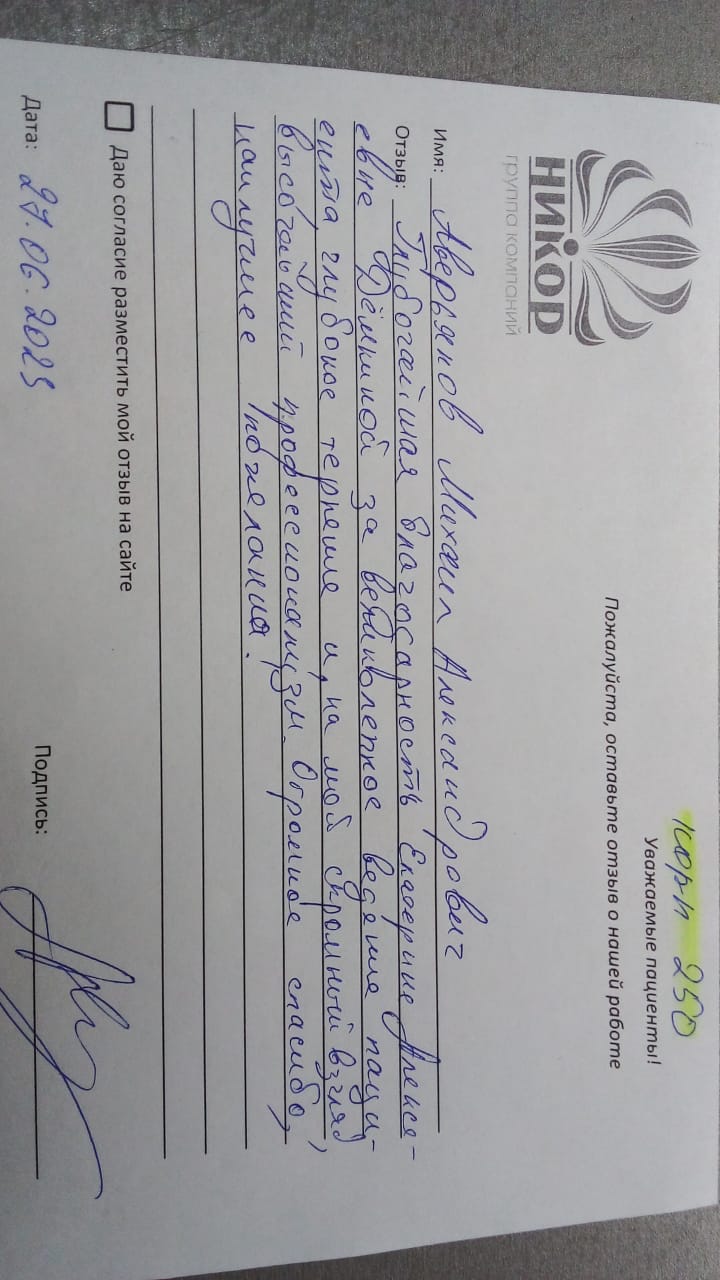 НИКОР
группа компаний
корп 250
Уважаемые пациенты!
Пожалуйста, оставьте отзыв о нашей работе
Имя: Аверьянов Михаил Александрович
Отзыв: Глубочайшая благодарность Екатерине Алексе-
евне Дёминой за великолепное ведение паци-
ента, глубокое терпение и, на мой скромный взгляд,
высочайший профессионализм. Огромное спасибо,
наилучшие пожелания.
Даю согласие разместить мой отзыв на сайте
Дата: 27.06.2023
Подпись: